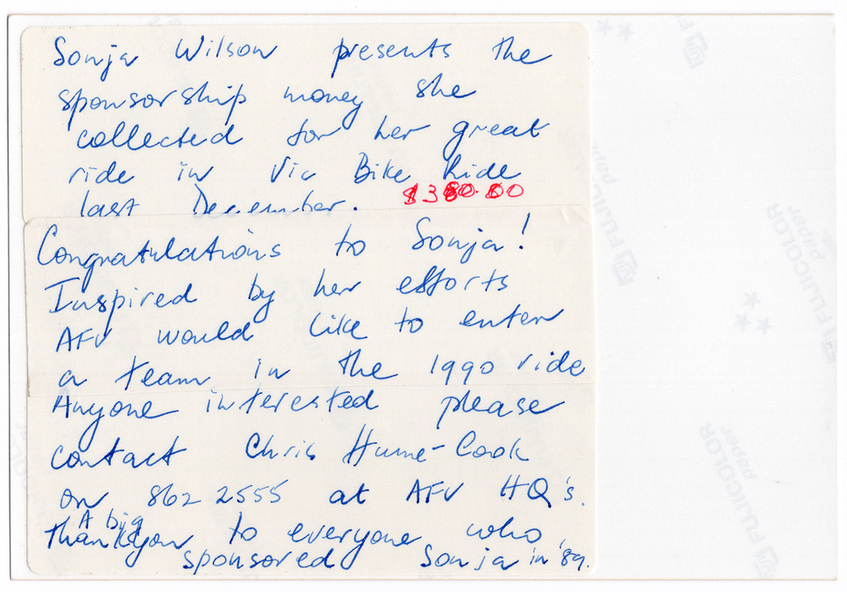 Sonja Wilson presents the
sponsorship money she
collected for her great
ride in Vic Bike Ride
last December. $380.00
Congratulations to Sonja!
Inspired by her efforts
AFV would like to enter
a team in the 1990 ride
Anyone interested please
contact Chris Hume-Cook
on 862 2555 at AFV HQ's.
A big
thankyou to everyone who
sponsored Sonja in '89.
FUJICOLOR
paper
FUJICOLOR
paper
FUJICOLOR
paper